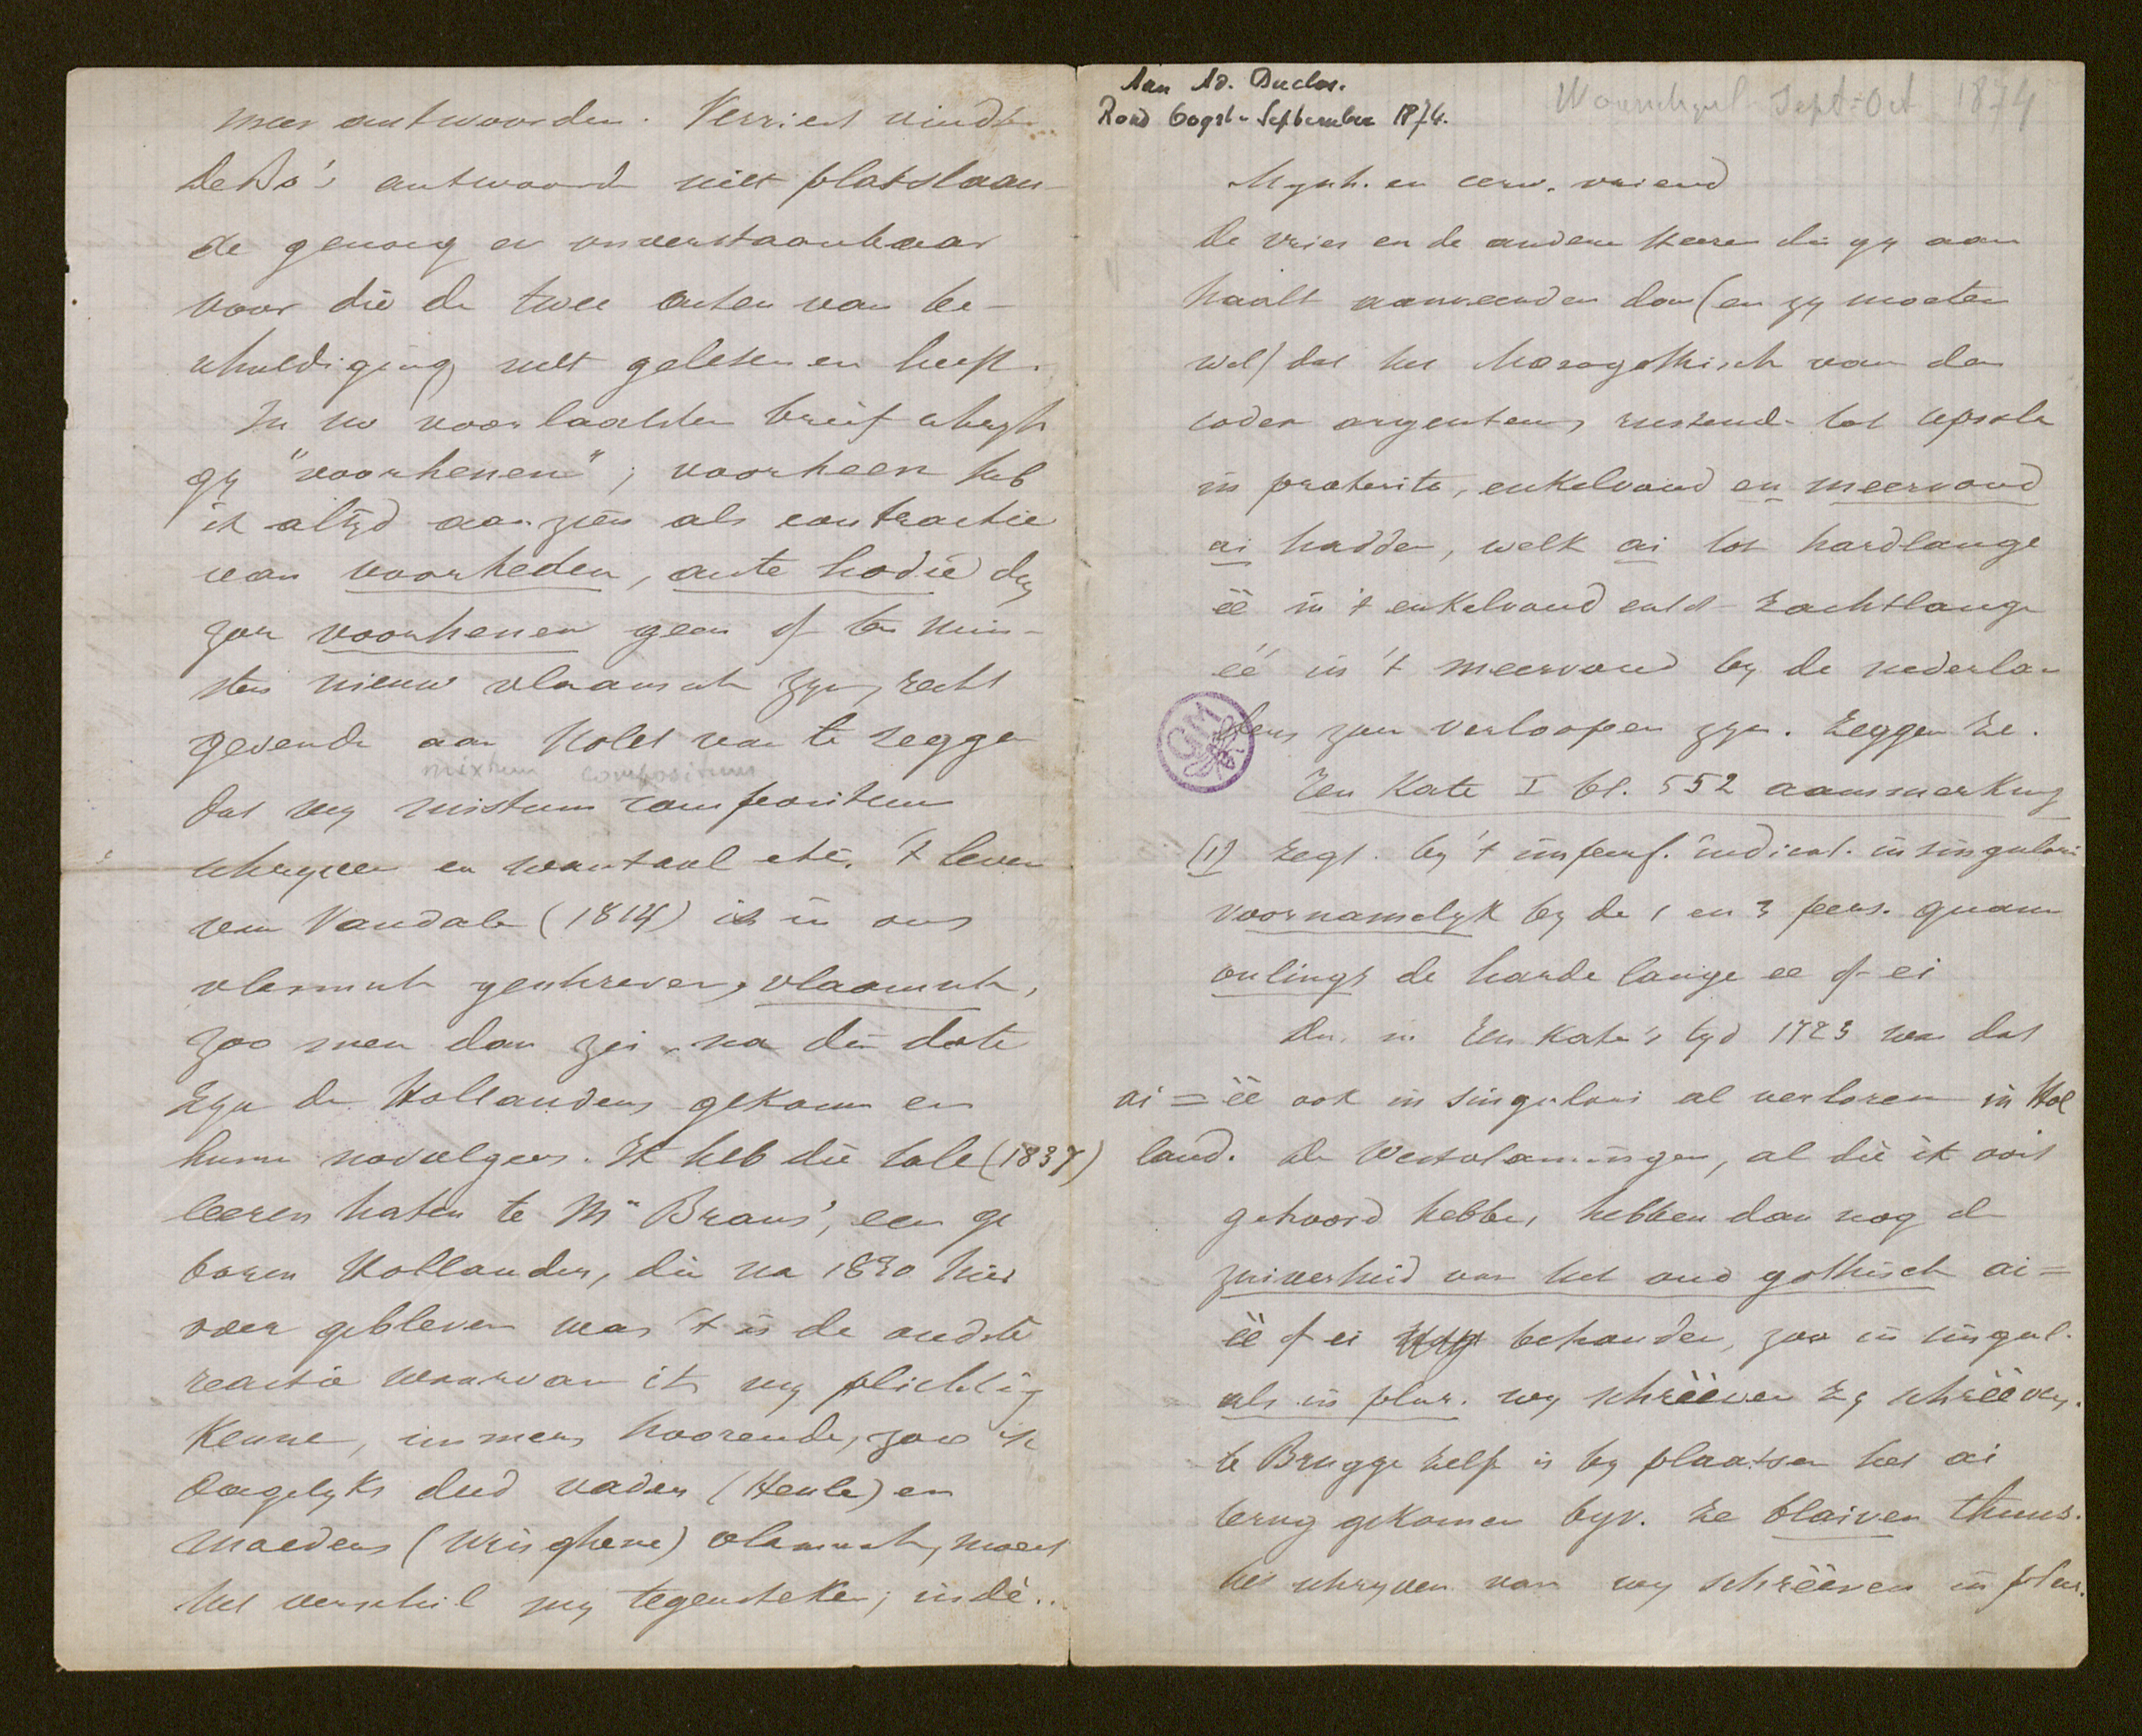 Aan Ad. Duclos.
Rond Oogst-September 1874.
Sept-Oct 1874
Mynh. en eerw. vriend
De vries en de andere Heeren die gy aan
haalt aanveerden dan (en zy moeten
wel) dat het Moesogothisch van den
codex argenteus, rustend- tot Upsala
in praeterito, enkelvoud en meervoud
ai hadde, welk ai tot hardlange
èè in 't enkelvoud en tot zachtlange
éé in 't meervoud by de nederlan
ders zou verloopen zyn. Zeggen ze.
Ten Kate I bl. 552 aanmerking
(1) zegt. by 't imperf. indicat. in singulari
voornamelyk by de 1 en 3 pers. quam
onlings de harde lange ee of ei
Dus in Ten Kate's tyd 1723 was dat
ai = èè ook in singulari al verloren in Hol
land. De Westvlamingen, al die ik ooit
gehoord hebbe, hebben dan nog de
zuiverheid van het oud gothisch ai =
èè of ei behouden, zoo in singul.
als in plur. wy schrèèven zy schrèèven.
te Brugge zelf is by plaatsen het ai
terug gekomen byv. ze blaiven thuus.
het schryven van wy schrèèven in plur.
meer antwoorden. Verriest vindt
De Bo's antwoorde niet platslaan-
de genoeg en onverstaanbaar
voor die de twee acten van be-
schuldiging niet gelesen en heeft.
In uw voorlaatsten brief schryft
gy "voorhenen"; voorheen heb
ik altyd aanzien als contractie
van voorheden, ante hodie dus
zou voorhenen geen of ten min-
sten nieuw vlaamsch zyn, recht
gevende aan Nolet van te zeggen
mixtum compositum
dat wy mistum compositum
schryven en wantaal etc. 't leven
van Vandale (1814) is in ons
vlamsch geschreven, vlaamsch,
zoo men dan zei, na die date
zyn de Hollanders gekomen en
hunne navolgers. Ik heb die tale (1837)
leeren haten te Mr Brans', een ge
boren Hollander, die na 1830 hier
voer gebleven was 't is de oudste
reactie waarvan ik my plichtig
kenne, immers hoorende, zoo ik
dagelyks deed vaders (Heule) en
moeders (Wringhene) vlamsch, moest
het verschil my tegensteken; indè..